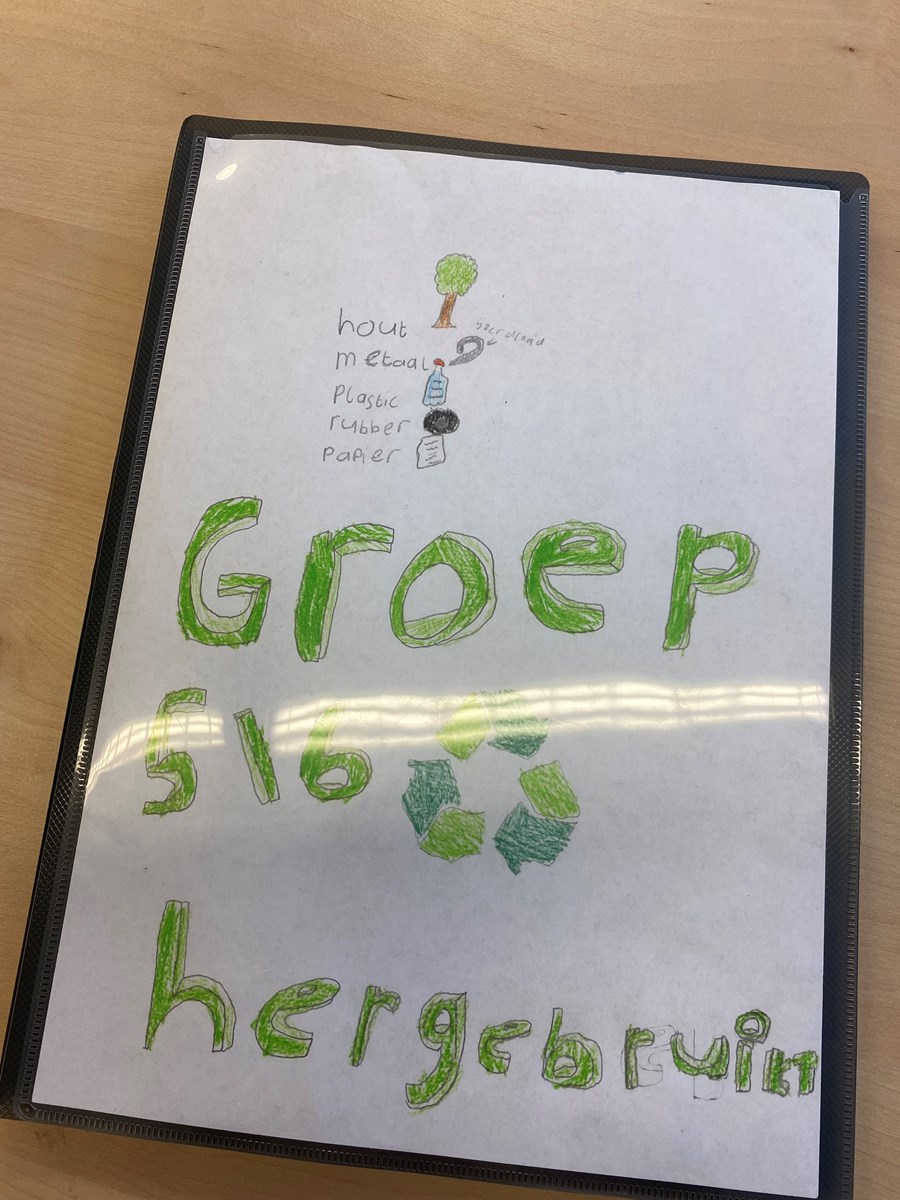 hout
ijzerdraad
metaal
Plastic
rubber
papier
Groep
5/6
hergebruikt